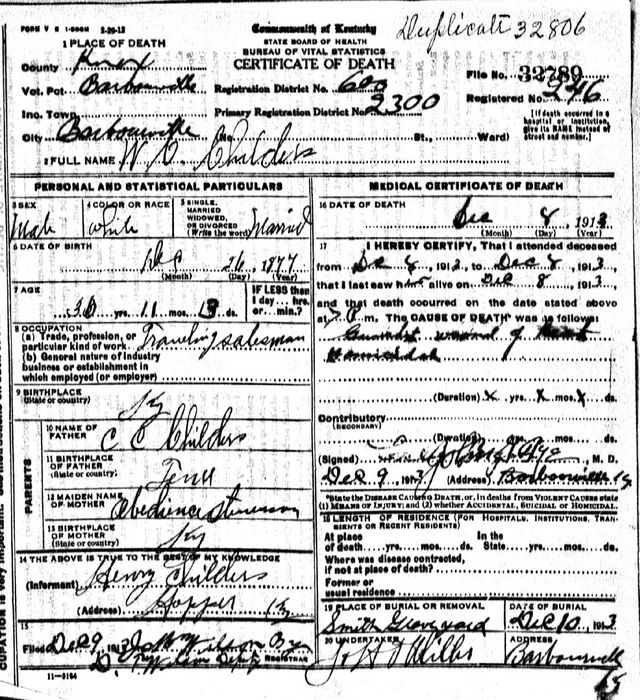 FORM V S 1-500M 2-26-12
Commonwealth of Kentucky
Duplicate 32806
STATE BOARD OF HEALTH
BUREAU OF VITAL STATISTICS
CERTIFICATE OF DEATH
1 PLACE OF DEATH
County Knox
Vot. Pct. Barbourville
Registration District No. 600
File No. 32789
Inc. Town
Primary Registration District No. 2300
Registered No. 246
City Barbourville No. St., Ward)
[If death occurred in a
hospital or institution,
give its NAME instead of
street and number.]
2 FULL NAME Childers
PERSONAL AND STATISTICAL PARTICULARS
3 SEX
Male
4 COLOR OR RACE
White
5 SINGLE,
MARRIED
WIDOWED,
OR DIVORCED
(Write the word)
Married
6 DATE OF BIRTH
Dec 26, 1877
(Month) (Day) (Year)
7 AGE
yrs. 11 mos. 13 ds.
IF LESS than
1 day... hrs.
or... min.?
8 OCCUPATION
(a) Trade, profession, or
particular kind of work Traveling salesman
(b) General nature of industry
business or establishment in
which employed (or employer)
9 BIRTHPLACE
(State or country)
Ky
PARENTS
10 NAME OF
FATHER
C C Childers
11 BIRTHPLACE
OF FATHER
(State or country)
Tenn
12 MAIDEN NAME
OF MOTHER
Obedience Stevenson
13 BIRTHPLACE
OF MOTHER
(State or country)
Ky
14 THE ABOVE IS TRUE TO THE BEST OF MY KNOWLEDGE
(Informant) Henry Childers
(Address) Hopper Ky
15
Filed Dec 9, 191
Deputy REGISTRAR
11-3184
MEDICAL CERTIFICATE OF DEATH
16 DATE OF DEATH
Dec 8, 1913
(Month) (Day) (Year)
17 I HEREBY CERTIFY, That I attended deceased
from Dec 8, 1913, to Dec 8, 1913
that I last saw alive on Dec 8, 1913
and that death occurred on the date stated above
at P m. The CAUSE OF DEATH was as follows:
wound of
(Duration) X yrs. X mos. X ds.
Contributory
(SECONDARY)
(Duration) yrs. mos. ds.
(Signed) M. D.
Dec 9, 1913 (Address) Barbourville Ky
*State the DISEASE CAUSING DEATH, or, in deaths from VIOLENT CAUSES state
(1) MEANS OF INJURY; and (2) whether ACCIDENTAL, SUICIDAL or HOMICIDAL.
18 LENGTH OF RESIDENCE (FOR HOSPITALS, INSTITUTIONS, TRAN-
SIENTS OR RECENT RESIDENTS)
At place In the
of death yrs. mos. ds. State yrs. mos. ds.
Where was disease contracted,
if not at place of death?
Former or
usual residence
19 PLACE OF BURIAL OR REMOVAL
Smith Graveyard
DATE OF BURIAL
Dec 10, 1913
20 UNDERTAKER
ADDRESS
Barbourville
Ky